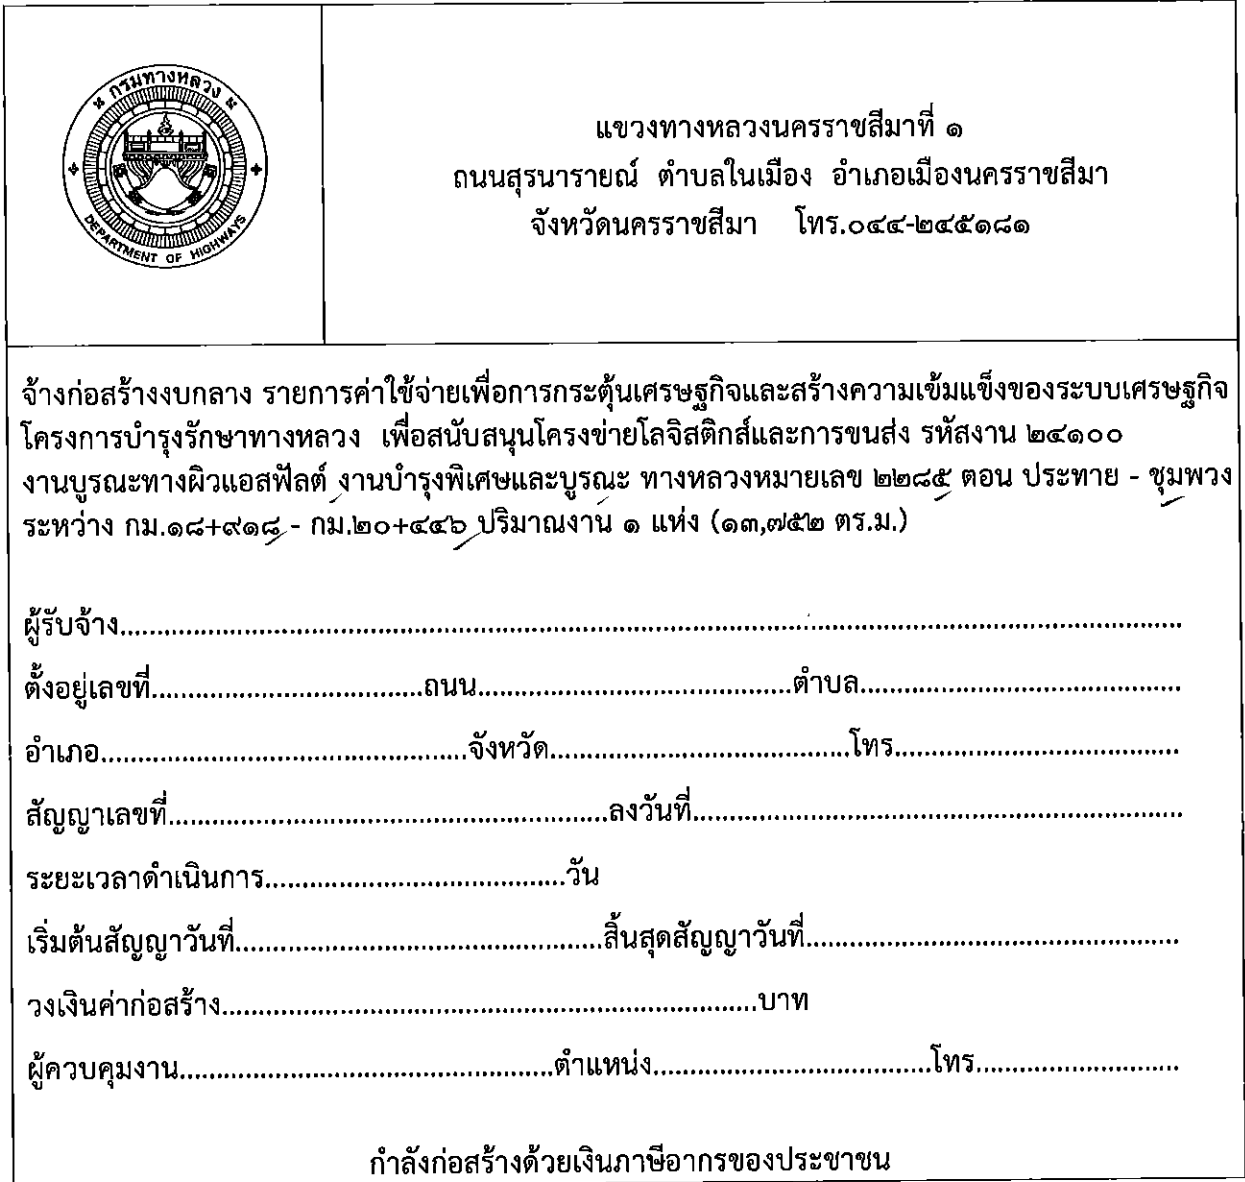 กรมทางหลวง
DEPARTMENT OF HIGHWAYS
แขวงทางหลวงนครราชสีมาที่ ๑
ถนนสุรนารายณ์ ตำบลในเมือง อำเภอเมืองนครราชสีมา
จังหวัดนครราชสีมา โทร.๐๔๔-๒๔๕๑๘๑
จ้างก่อสร้างงบกลาง รายการค่าใช้จ่ายเพื่อการกระตุ้นเศรษฐกิจและสร้างความเข้มแข็งของระบบเศรษฐกิจ
โครงการบำรุงรักษาทางหลวง เพื่อสนับสนุนโครงข่ายโลจิสติกส์และการขนส่ง รหัสงาน ๒๔๑๐๐
งานบูรณะทางผิวแอสฟัลต์ งานบำรุงพิเศษและบูรณะ ทางหลวงหมายเลข ๒๒๘๕ ตอน ประทาย - ชุมพวง
ระหว่าง กม.๑๘+๙๑๘ - กม.๒๐+๔๔๖ ปริมาณงาน ๑ แห่ง (๑๓,๗๕๒ ตร.ม.)
ผู้รับจ้าง..........
ตั้งอยู่เลขที่..........ถนน..........ตำบล..........
อำเภอ..........จังหวัด..........โทร..........
สัญญาเลขที่..........ลงวันที่..........
ระยะเวลาดำเนินการ..........วัน
เริ่มต้นสัญญาวันที่..........สิ้นสุดสัญญาวันที่..........
วงเงินค่าก่อสร้าง..........บาท
ผู้ควบคุมงาน..........ตำแหน่ง..........โทร..........
กำลังก่อสร้างด้วยเงินภาษีอากรของประชาชน